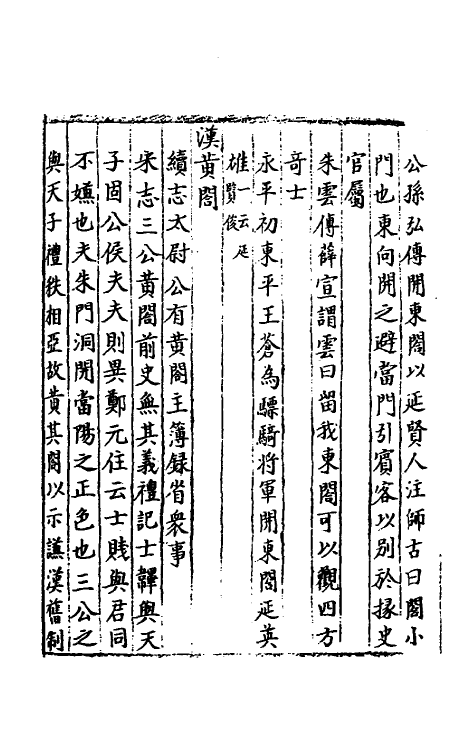 公孫弘傳開東閤以延賢人注師古曰閤小
門也東向開之避當門引賓客以别於掾史
官屬
朱雲傳薛宣謂雲曰留我東閤可以觀四方
竒士
永平初東平王蒼為驃騎将軍開東閤延英
雄一云延
賢俊
漢黄閤
續志太尉公有黄閤主簿録省衆事
宋志三公黄閤前史無其義禮記士韠與天
子同公侯夫夫則異鄭元住云士賤與君同
不嫌也夫朱門洞開當陽之正色也三公之
與天子禮秩相亞故黄其閤以示謙漢舊制